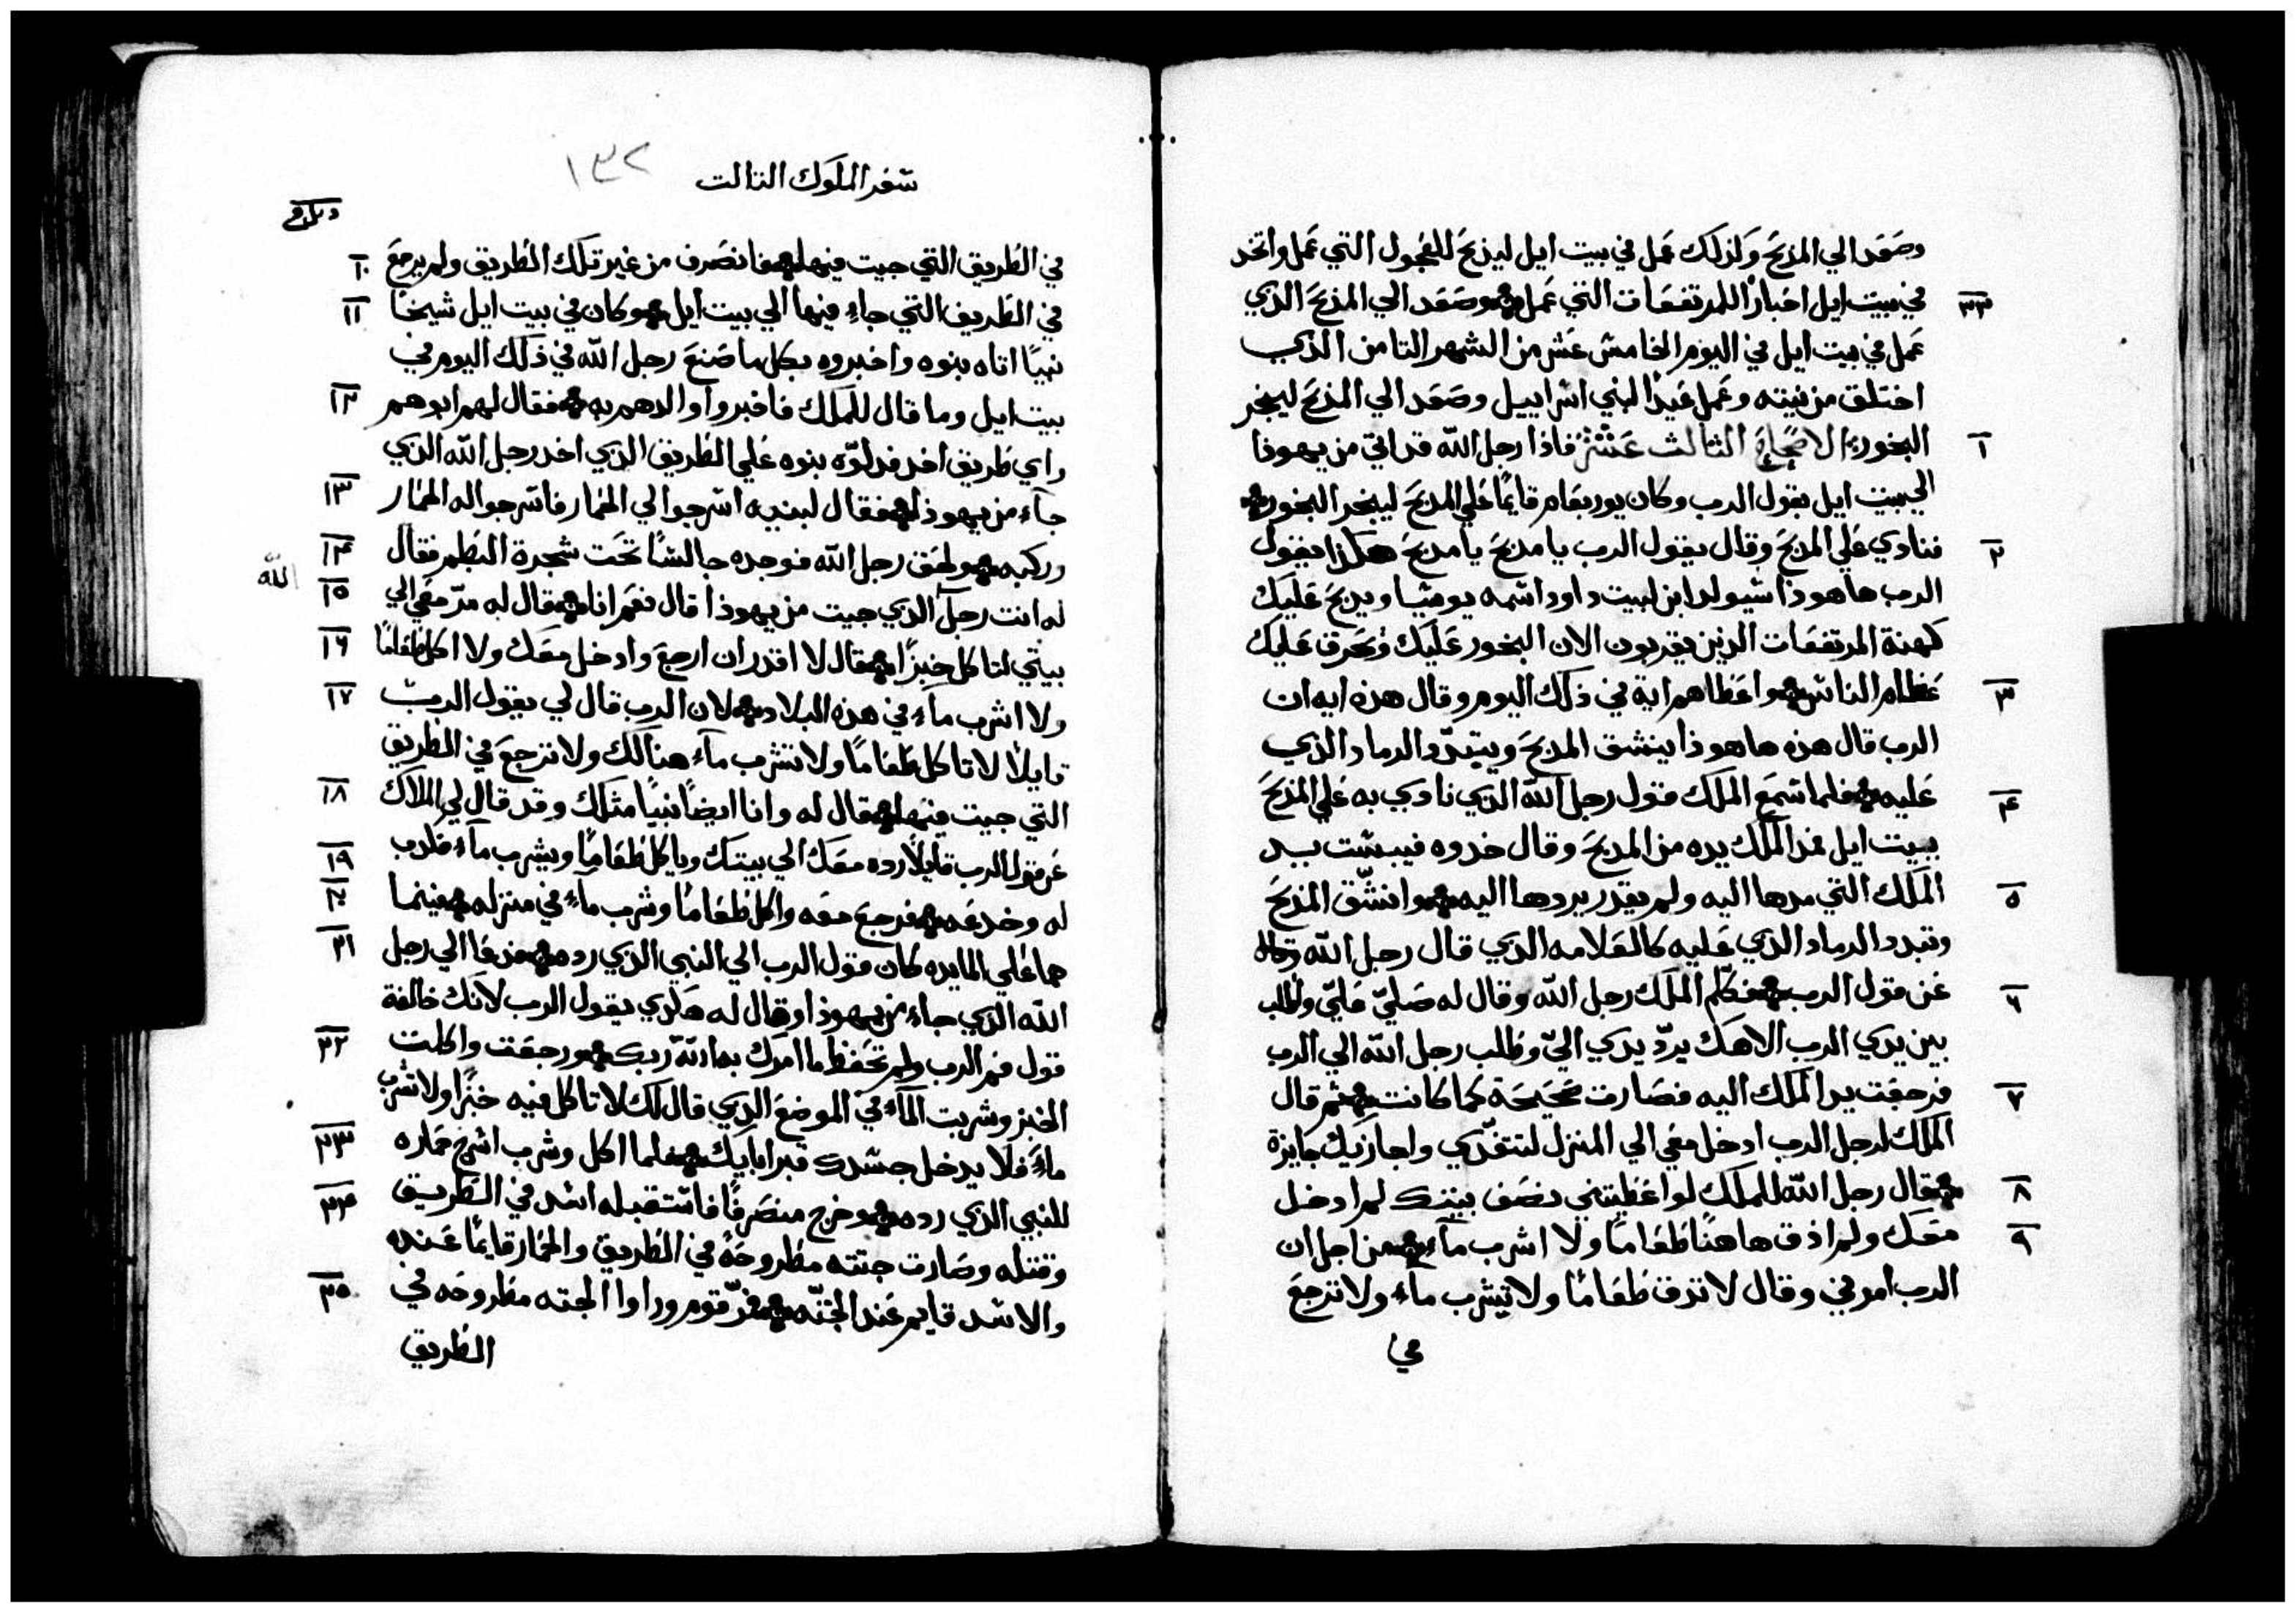 وصَعَد الي المذبحَ وَلذلك عَمل في بيت ايل ليذبحَ للعُجول التي عَمل واتخد
٣٣ في بيت ايل احَبارًا للمرتفعَات التي عَمل وصَعَد الي المذبحَ الذي
عَمل في بيت ايل في اليوم الخامسَ عَشر من الشهر التامن الذي
اختلق من نيته وعَمل عَيدًا لبني اسَراييل وصَعَد الي المذبحَ ليبخر
١ البخور الاصحَاحَ الثالث عَشر فاذا رجل الله قد اتي من يهوذا
الي بيت ايل بقول الرب وكان يوربعَام قايمًا عَلي المدبحَ ليبخر البخور
٢ فنادي عَلي المدبحَ وقال بقول الرب يا مدبحَ يا مدبحَ هكذا يقول
الرب هاهوذا سَيولد ابن لبيت داود اسَمه يوسَيا ويدبحَ عَليك
كهنة المرتفعَات الدين يقربون الان البخور عَليك وُيحَرق عَليك
٣ عَظام الناسَ واعَطاهم اية في ذلك اليوم وقال هذه ايه ان
الرب قال هذه هاهوذا ينشق المدبحَ ويتبدّد الرماد الذي
٤ عَليه فلما سَمع الملك قول رجل الله الذي نادي به عَلي المذبحَ
ببيت ايل مد الملك يده من المدبحَ وقال خدوه فيبسَت يد
٥ الملك التي مدها اليه ولم يقدر يردها اليه وانشّق المذبحَ
وتبدد الرماد الذي عَليه كالعَلامه الذي قال رجل الله وقاله
٦ عَن قول الرب فكلم الملك رجل الله وقال له صَليّ عَليّ واطلب
بين يدي الرب الاهك يردّ يدي اليّ وطلب رجل الله الي الرب
٧ فرجعَت يد الملك اليه فصَارت صَحيحَة كما كانت ثم قال
الملك لرجل الرب ادخل معَي الي المنزل لتتغدّي واجازيك جايزة
٨ قال رجل الله للملك لو اعَطيتني نصَف بيتك لم ادخل
٩ معَك ولم اذق هاهنًا طعَامًا ولا اشرب مآء من اجل ان
الرب امرني وقال لا تدق طعَامًا ولا تشرب ماء ولا ترجعَ
في
سَفر الملوك التالت
١٣٢
١٠ في الطريق التي جيت فيها فانصَرف من غير تلك الطريق ولم يرجعَ
١١ في الطريق التي جاء فيها الي بيت ايل وكان في بيت ايل شيخًا
نبيًا اتاه بنوه واخبروه بكل ما صَنعَ رجل الله في ذلك اليوم في
١٢ بيت ايل وما قال للملك فاخبروا والدهم به فقال لهم ابوهم
واي طريق اخد فدلوّه بنوه عَلي الطريق الذي اخد رجل الله الذي
١٣ جآء من يهوذا فقال لبنيه اسَرجوا لي الحَمار فاسَرجوا له الحَمار
١٤ وركبه ولحَق رجل الله فوجده جالسًا تحَت شجرة البطم فقال
١٥ له انت رجل الله الذي جيت من يهوذا قال نعَم انا قال له مرّ معَي الي
١٦ بيتي لتاكل خبزًا قال لا اقدر ان ارجعَ وادخل معَك ولا اكل طعَامًا
١٧ ولا اشرب مآء في هذه البلاد لان الرب قال لي بقول الرب
قايلاً لا تاكل طعَامًا ولا تشرب مآء هنالك ولا ترجعَ في الطريق
١٨ التي جيت فيها قال له وانا ايضًا نبيًا مثلك وقد قال لي الملاك
١٩ عَن قول الرب قايلاً رده معَك الي بيتك وياكل طعَامًا ويشرب مآء فكدب
٢٠ له وخدعَه فرجعَ معَه واكل طعَامًا وشرب مآء في منزله فبينما
٢١ هما عَلي المايده كان قول الرب الي النبي الذي رده فدعَا الي رجل
الله الذي جاء من يهوذا وقال له هكذي يقول الرب لانك خالفة
٢٢ قول فم الرب ولم تحَفظ ما امرك به الله ربك ورجعَت واكلت
الخبز وشربت المآء في الموضعَ الذي قال لك لا تاكل فيه خبزًا ولا تشرب
٢٣ ماءً فلا يدخل جسَدك قبر اباييك فلما اكل وشرب اسَرج حَماره
٢٤ للنبي الذي رده وخرج منصَرفًا فاسَتقبله اسَد في الطريق
وقتله وصَارت جتته مطروحَة في الطريق والحَمار قايمًا عَنده
٢٥ والاسَد قايم عَند الجتّه فمرّ قوم وراوا الجته مطروحَه في
الطريق